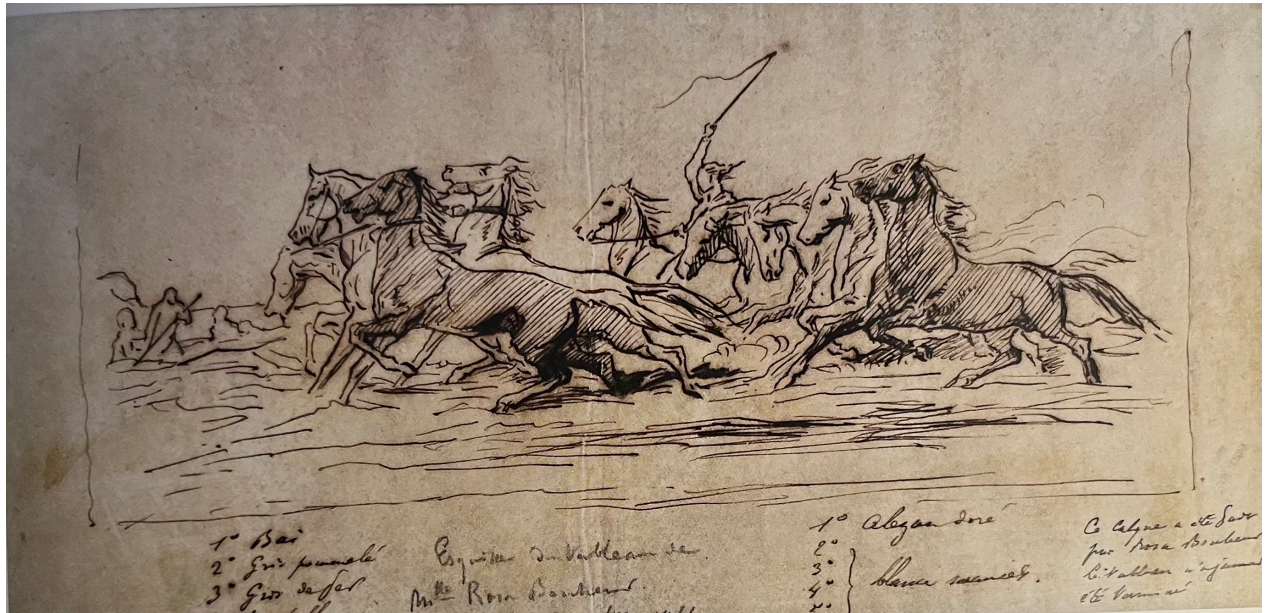 1° Bai
2° Gris pommelé
3° Gris de fer
Esquisse du tableau de
Mlle Rosa Bonheur.
1° alezan doré
2°
3°
4°
blancs
Ce Calque a été
par Rosa Bonheur
le tableau n'a jamais
été